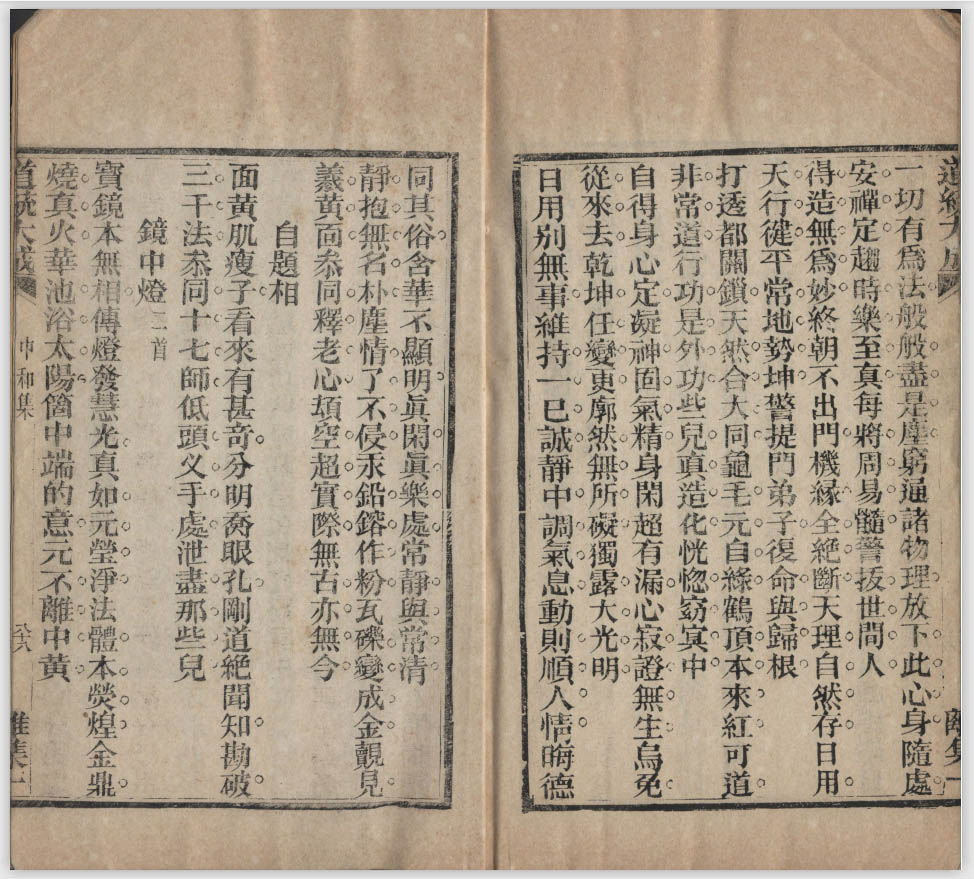 道統大成
離集一
一切有爲法般般盡是塵窮通諸物理放下此心身隨處
安禪定趨時樂至真每將周易髓警拔世間人
得造無爲妙終朝不出門機緣全絶斷天理自然存日用
天行健平常地勢坤警提門弟子復命與歸根
打透都關鎖天然合大同龜毛元自綠鶴頂本來紅可道
非常道行功是外功些兒眞造化恍惚窈冥中
自得身心定凝神固氣精身閑超有漏心寂證無生烏兔
從來去乾坤任變更廓然無所礙獨露大光明
日用别無事維持一巳誠靜中調氣息動則順人情晦德
同其俗含華不顯明眞閑眞樂處常靜與常清
靜抱無名朴塵情了不侵汞鉛鎔作粉瓦礫變成金覿見
羲黄面叅同釋老心頑空超實際無古亦無今
自題相
面黄肌瘦子看來有甚竒分明喬眼孔剛道絶聞知勘破
三千法叅同十七師低頭义手處泄盡那些兒
鏡中燈二首
寳鏡本無相傳燈發慧光真如元瑩淨法體本熒煌金鼎
燒真火華池浴太陽箇中端的意元不離中黄
道統大成
中和集
八六
離集一